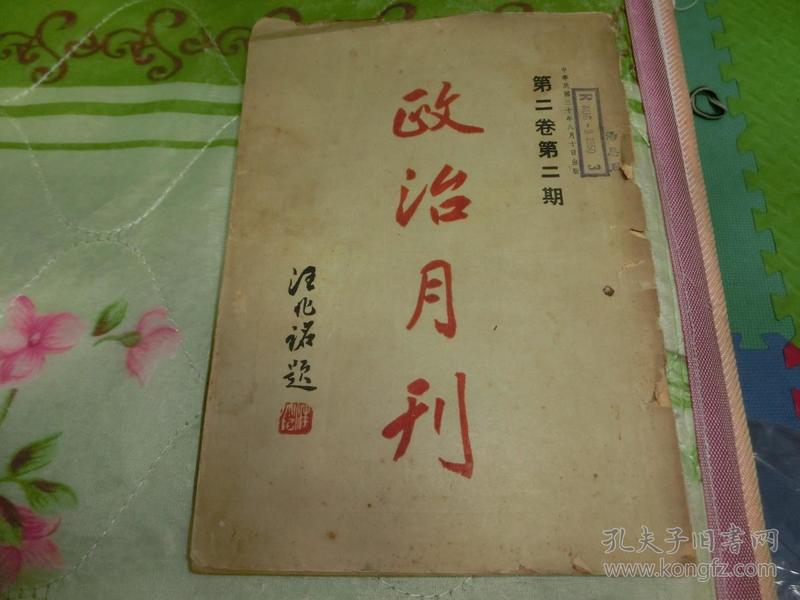 中華民國三十年八月十日出版
第二卷第二期
政治月刊
汪兆銘題
孔夫子旧书网
www.kongfz.com